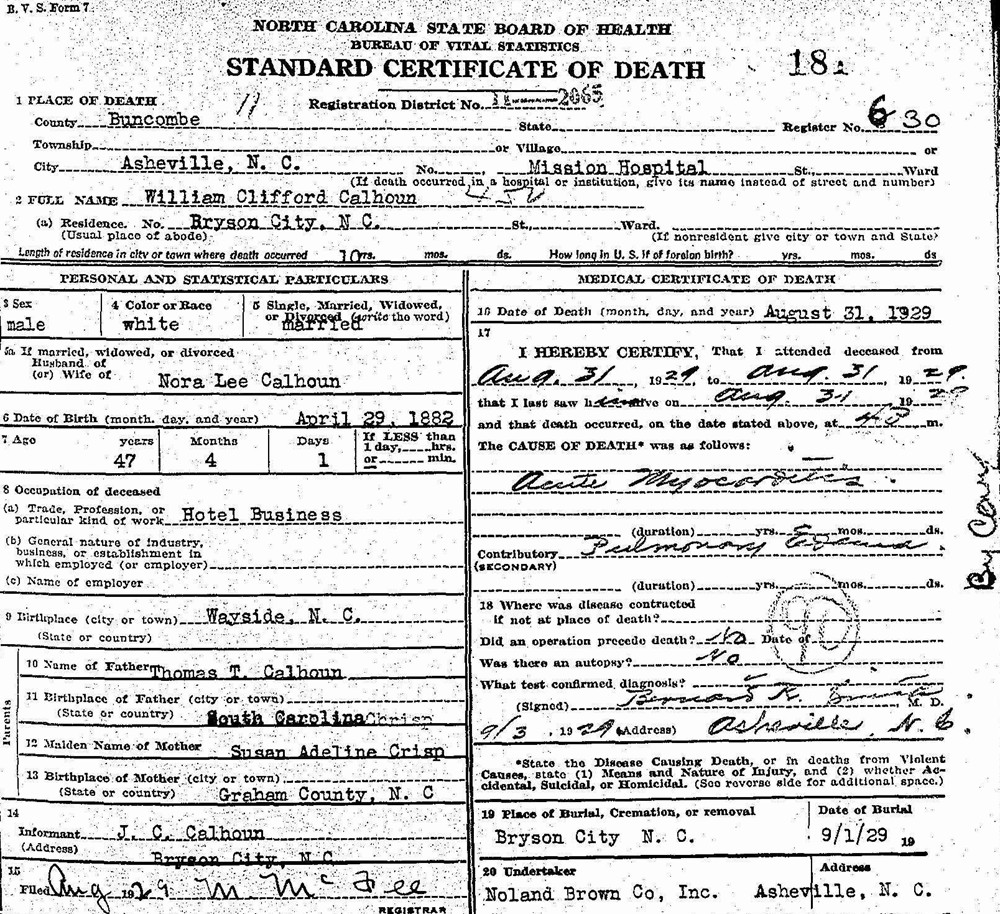 B. V. S. Form 7
NORTH CAROLINA STATE BOARD OF HEALTH
BUREAU OF VITAL STATISTICS
STANDARD CERTIFICATE OF DEATH
18
1 PLACE OF DEATH
11
Registration District No. 2065
County Buncombe State Register No. 630
Township or Village or
City Asheville, N. C. No. Mission Hospital St., Ward
(If death occurred in a hospital or institution, give its name instead of street and number)
2 FULL NAME William Clifford Calhoun
(a) Residence. No. Bryson City, N C. St., Ward.
(Usual place of abode) (If nonresident give city or town and State)
Length of residence in city or town where death occurred 10 yrs. mos. ds. How long in U. S. if of foreign birth? yrs. mos. ds
PERSONAL AND STATISTICAL PARTICULARS
3 Sex
male
4 Color or Race
white
5 Single, Married, Widowed,
or Divorced (write the word)
married
5a If married, widowed, or divorced
Husband of
(or) Wife of
Nora Lee Calhoun
6 Date of Birth (month, day, and year) April 29, 1882
7 Age years Months Days If LESS than
1 day, hrs.
47 4 1 or min.
8 Occupation of deceased
(a) Trade, Profession, or
particular kind of work Hotel Business
(b) General nature of industry,
business, or establishment in
which employed (or employer)
(c) Name of employer
9 Birthplace (city or town) Wayside, N. C.
(State or country)
Parents
10 Name of Father Thomas T. Calhoun
11 Birthplace of Father (city or town)
(State or country) South Carolina
12 Maiden Name of Mother Susan Adeline Crisp
13 Birthplace of Mother (city or town)
(State or country) Graham County, N. C
14
Informant J. C. Calhoun
(Address) Bryson City, N C
15
Filed Aug 1929 M Mc Fee
REGISTRAR
MEDICAL CERTIFICATE OF DEATH
16 Date of Death (month, day, and year) August 31, 1929
17
I HEREBY CERTIFY, That I attended deceased from
Aug. 31, 1929, to Aug. 31, 1929
that I last saw him alive on Aug. 31 1929
and that death occurred, on the date stated above, at m.
The CAUSE OF DEATH* was as follows:
Acute Myocarditis
(duration) yrs. mos. ds.
Contributory Pulmonary Edema
(SECONDARY)
(duration) yrs. mos. ds.
18 Where was disease contracted
if not at place of death?
90
Did an operation precede death? No Date of
Was there an autopsy? No
What test confirmed diagnosis?
(Signed) Bernard R. Smith, M. D.
9/3, 1929 (Address) Asheville, N. C
*State the Disease Causing Death, or in deaths from Violent
Causes, state (1) Means and Nature of Injury, and (2) whether Ac-
cidental, Suicidal, or Homicidal. (See reverse side for additional space.)
19 Place of Burial, Cremation, or removal
Bryson City N. C.
Date of Burial
9/1/29 19
20 Undertaker
Noland Brown Co, Inc.
Address
Asheville, N. C.